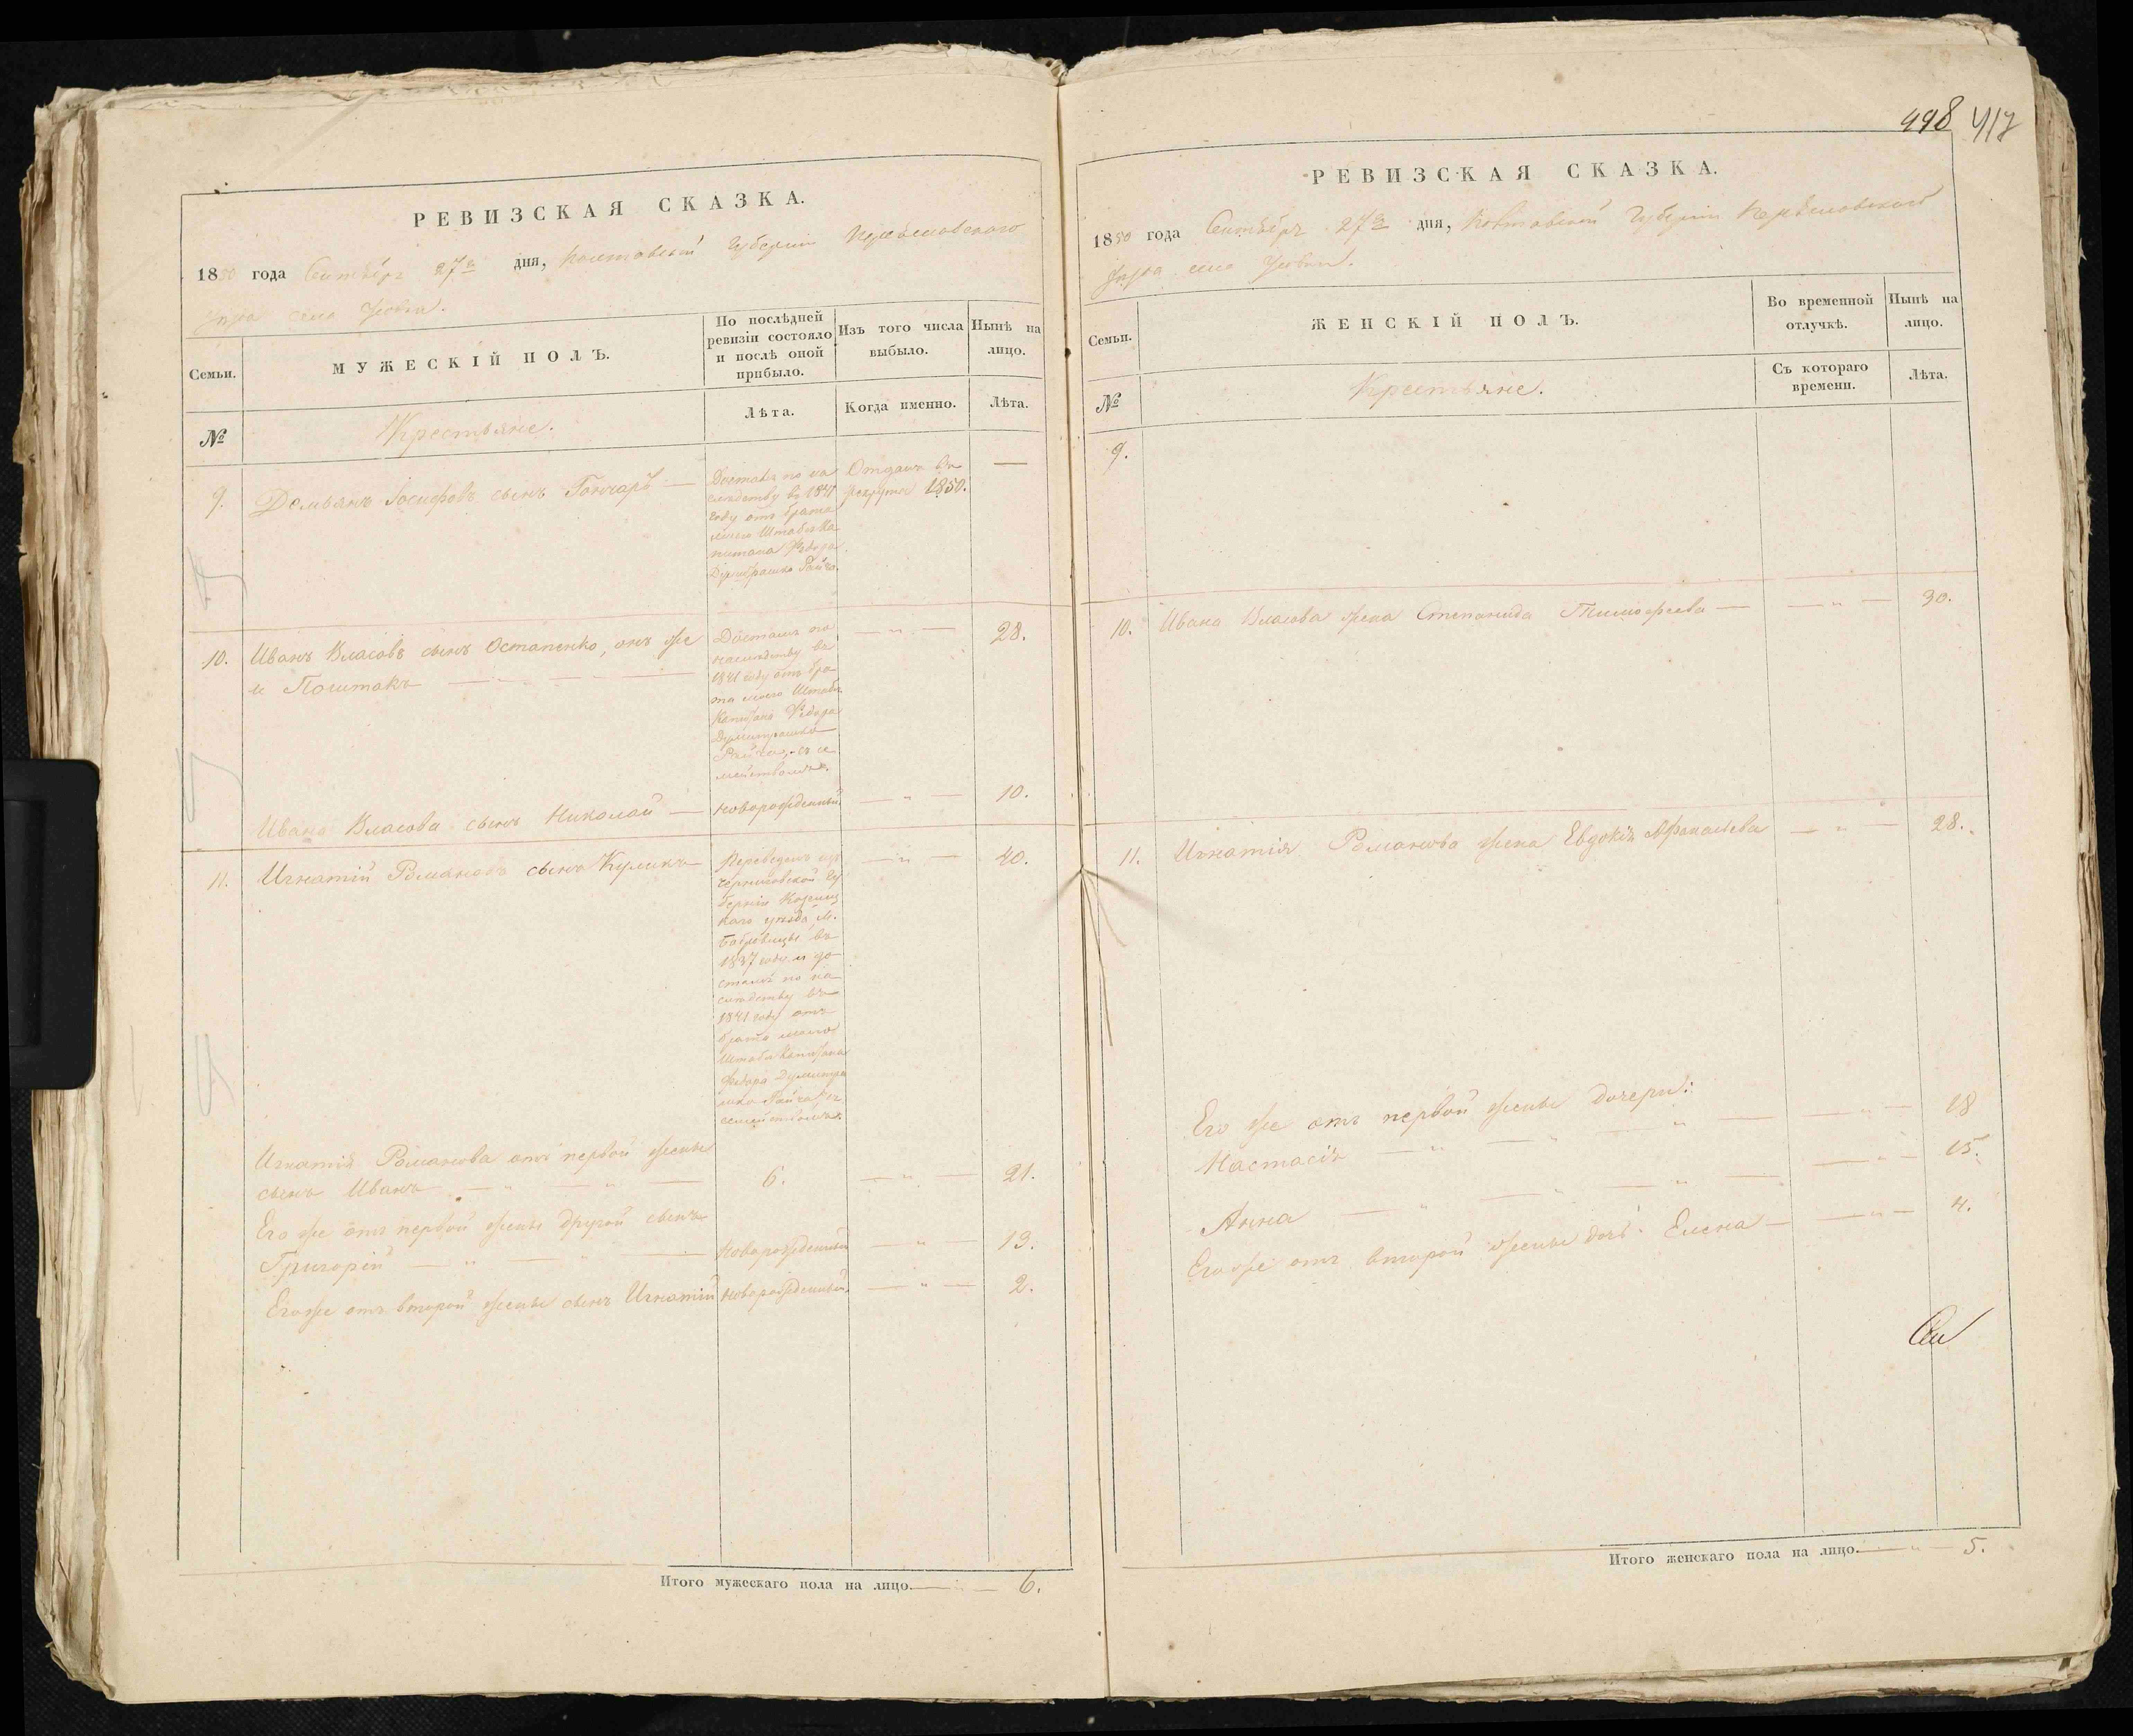 РЕВИЗСКАЯ СКАЗКА.
1850 года Сентября 27го дня, Полтавской Губернии Переяславскаго
Уезда села
Семьи.
МУЖЕСКІЙ ПОЛЪ.
По послѣдней
ревизіи состояло
и послѣ оной
прибыло.
Изъ того числа
выбыло.
Нынѣ на
лицо.
№
Крестьяне.
Лѣта.
Когда именно.
Лѣта.
9.
Демьянъ Іосифовъ сынъ Гончаръ —
Досталъ по на
следству въ 1841
году отъ брата
моего Штабсъ Ка
питана Федора
Думитрашко Райча.
Отданъ въ
рекруты 1850.
—
10.
Иванъ Власовъ сынъ Остапенко, онъ же
и Полтакъ — „ — „ —
Досталъ по
наследству въ
1841 году отъ бра
та моего Штабсъ
Капитана Федора
Думитрашко
Райча, съ се
мействомъ.
— „ —
28.
Ивана Власова сынъ Николай —
новорожденный.
— „ —
10.
11.
Игнатій Романовъ сынъ Куликъ —
Переведенъ изъ
Черниговской Гу
берніи Козелец
каго уезда, М.
Бобровицы въ
1837 году и до
сталъ по на
следству въ
1841 году отъ
брата моего
Штабсъ Капитана
Федора Думитра
шко Райча съ
семействомъ.
— „ —
40.
Игнатія Романова отъ первой жены
сынъ Иванъ — „ — „ —
6.
— „ —
21.
Его же отъ первой жены другой сынъ
Григорій — „ — „ —
новорожденный
— „ —
13.
Его же отъ второй жены сынъ Игнатій
новорожденный.
— „ —
2.
Итого мужескаго пола на лицо. — „ — 6.
498 417
РЕВИЗСКАЯ СКАЗКА.
1850 года Сентября 27го дня, Полтавской Губерніи Переяславскаго
Уезда села
Семьи.
ЖЕНСКІЙ ПОЛЪ.
Во временной
отлучкѣ.
Нынѣ на
лицо.
№
Крестьяне.
Съ котораго
времени.
Лѣта.
9.
10.
Ивана Власова жена Степанида Тимофеева —
— „ —
30.
11.
Игнатія Романова жена Евдокія Афанасьева
— „ —
28.
Его же отъ первой жены дочери:
Настасія — „ — „ — „ —
— „ —
18
Анна — „ — „ — „ —
— „ —
15.
Его же отъ второй жены дочь Елена —
— „ —
4.
Итого женскаго пола на лицо. — „ — 5.